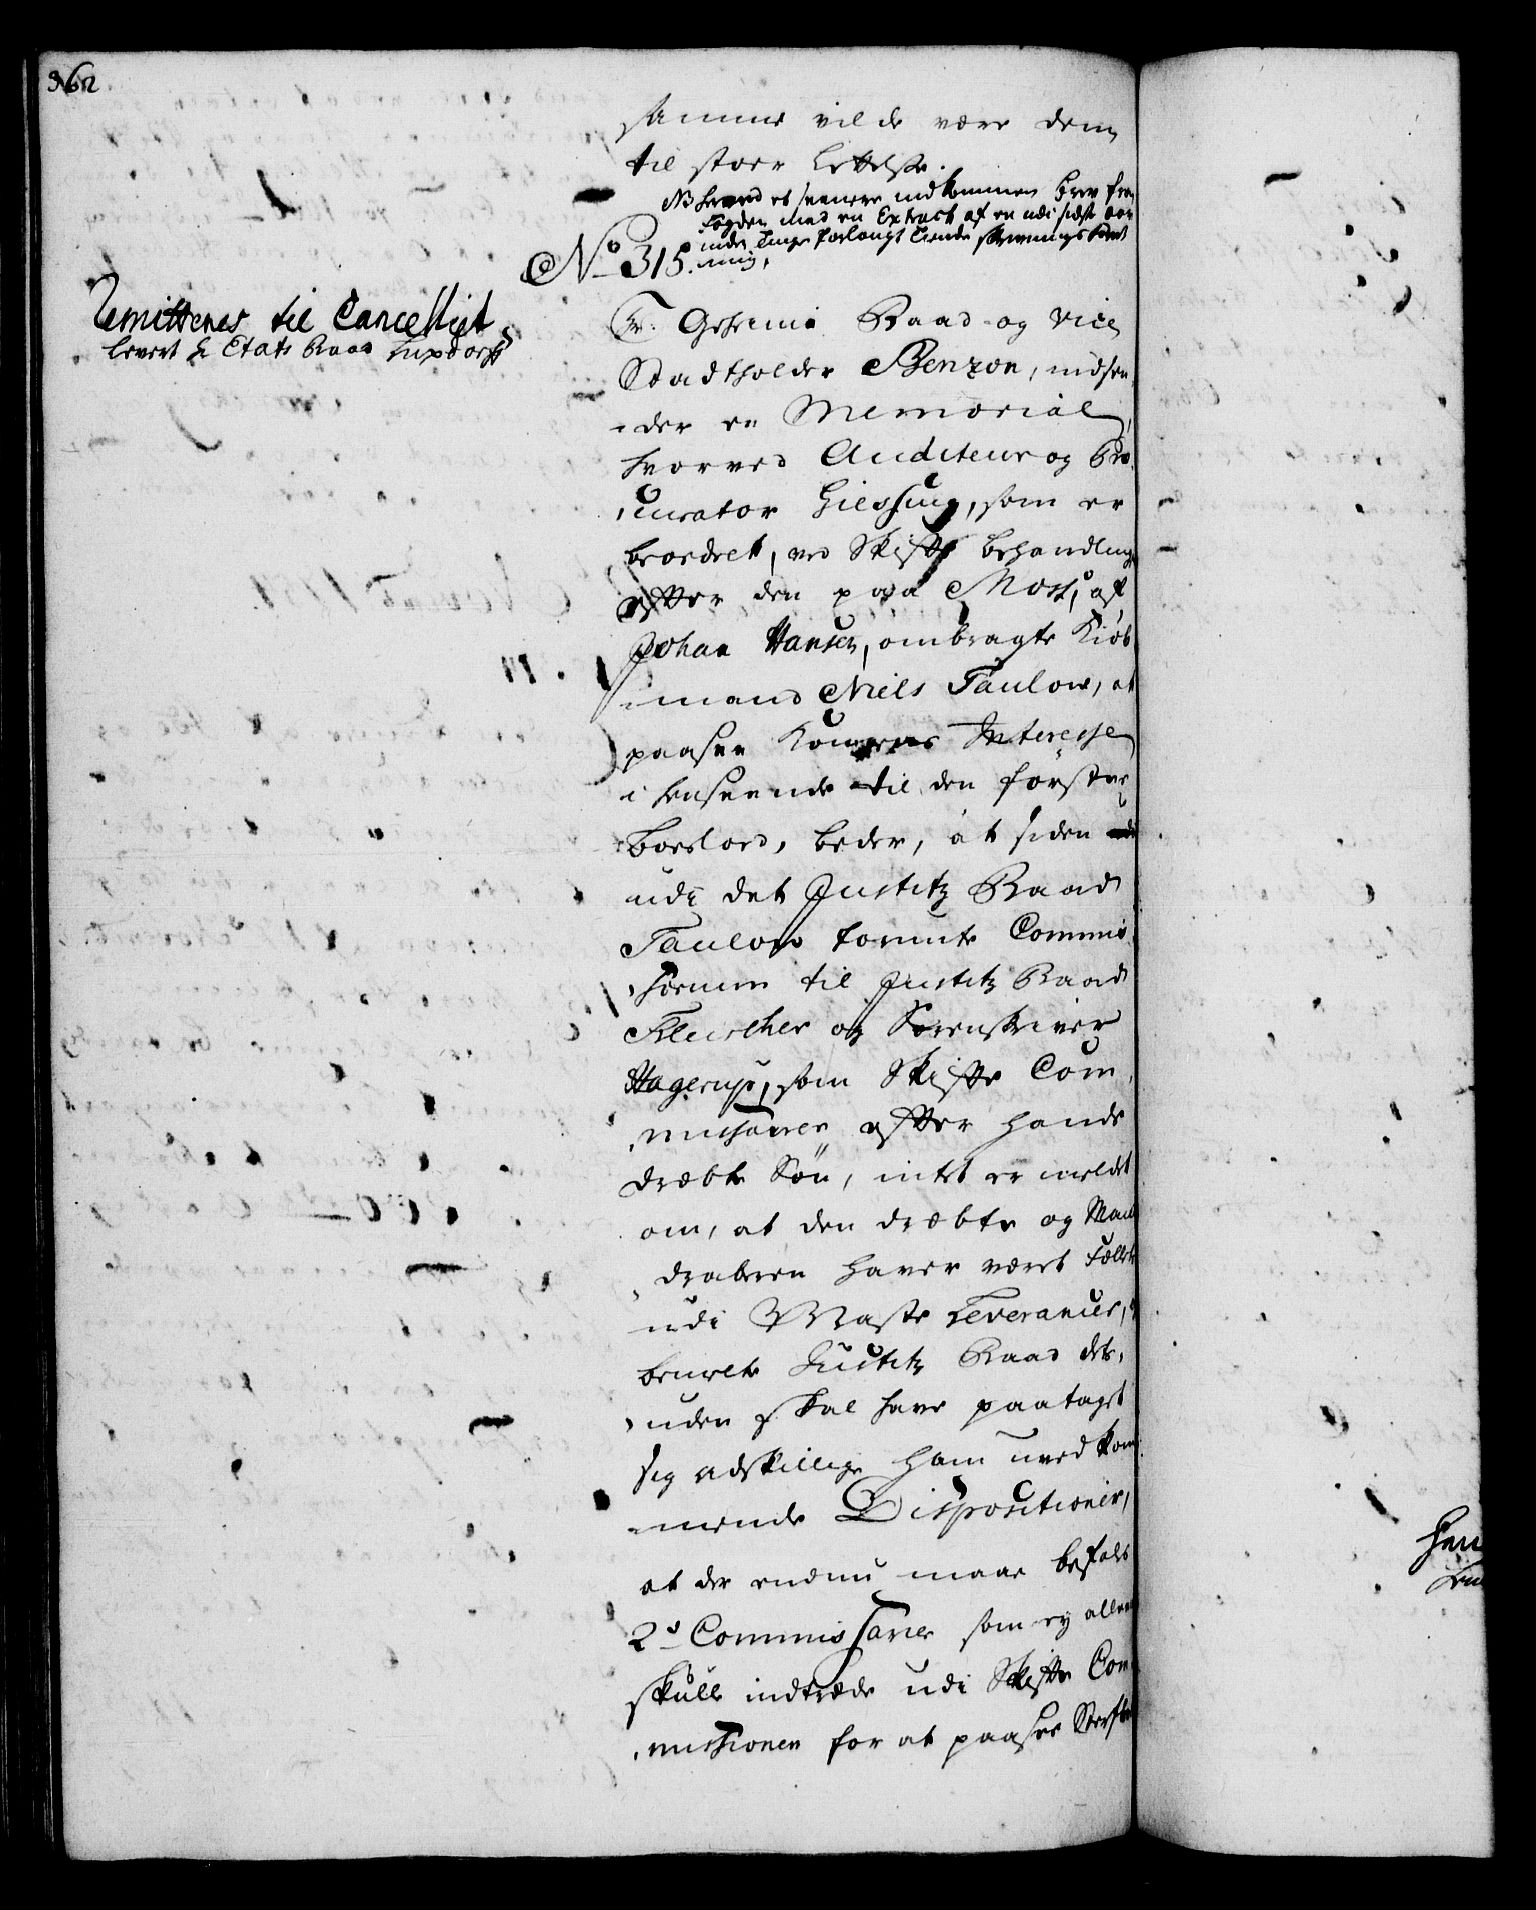 362
samme vilde være dem
til stoer Lettelse.
NB herved et seenere indkommen brev fra
Fogden med en Extract af en udi sidst aar
inde Tinge forlangt
No 315.
Remitteres til Cancelliet
levert H Etats Raad Luxdorff
Hr. Geheime Raad og Vice
Stadtholder Benzon, indsen
der en Memorial,
hvorved Auditeur og Pro
curator Giessing, som er
beordret, ved Skifte behandling
efter den paa Moss, af
Johan Hansen, ombragte Kiøb
mand Niels Taulow, at
paasee Kongens Interesse
i henseende til den første
boeslod, beder, at siden
udi det Justitz Raad
Taulow forundte Commis
sorium til Justitz Raad
Fleischer og Sorenskriver
Hagerup, som Skifte Com
missairer efter hands
dræbte Søn, intet er meldet
om, at den dræbte og Man
draberen haver været Fælles
udi Maste Leverancer,
benevnte Justitz Raad des,
uden skal have paataget
sig adskillige ham uvedkom
mende Dispositioner,
at der endnu maae befales
2de Commissarier som ey alleene
skulle indtræde udi Skifte Com
missionen for at paasee